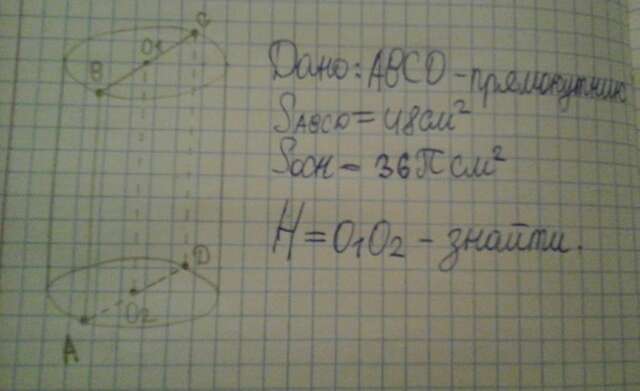 C
O1
B
Дано: ABCD - прямокутник
SABCD = 48 см²
Sосн - 36П см²
H = O1O2 - знайти.
D
O2
A